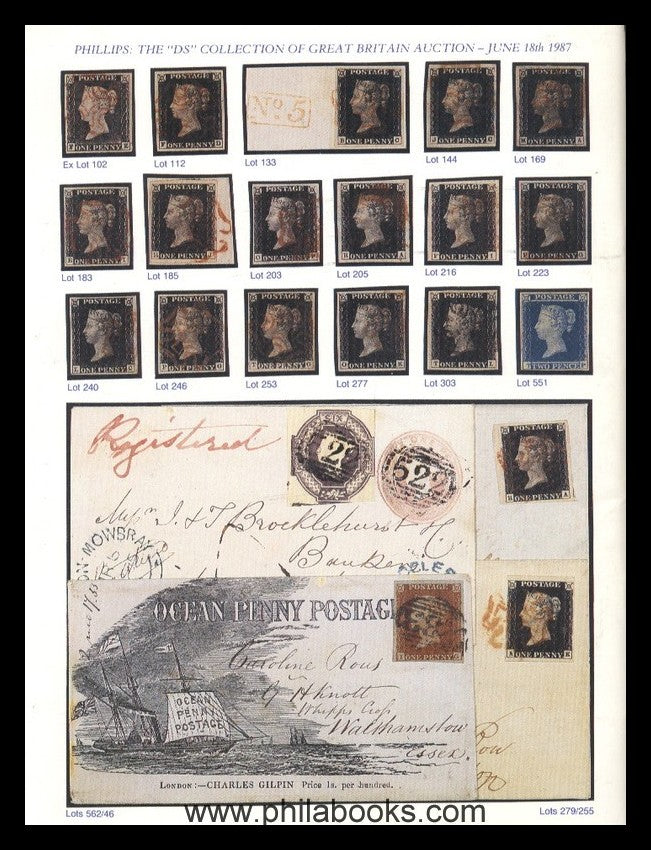 PHILLIPS: THE "DS" COLLECTION OF GREAT BRITAIN AUCTION – JUNE 18th 1987
POSTAGE
ONE PENNY
POSTAGE
ONE PENNY
No. 5
POSTAGE
ONE PENNY
POSTAGE
ONE PENNY
POSTAGE
ONE PENNY
Ex Lot 102
Lot 112
Lot 133
Lot 144
Lot 169
POSTAGE
ONE PENNY
POSTAGE
ONE PENNY
POSTAGE
ONE PENNY
POSTAGE
ONE PENNY
POSTAGE
ONE PENNY
POSTAGE
ONE PENNY
Lot 183
Lot 185
Lot 203
Lot 205
Lot 216
Lot 223
POSTAGE
ONE PENNY
POSTAGE
ONE PENNY
POSTAGE
ONE PENNY
POSTAGE
ONE PENNY
POSTAGE
ONE PENNY
POSTAGE
TWO PENCE
Lot 240
Lot 246
Lot 253
Lot 277
Lot 303
Lot 551
Registered
SIX
522
POSTAGE
ONE PENNY
J & T Brocklehurst
ON-MOWBRAY
OCEAN PENNY POSTAGE
Caroline Rous
H Knott
Whipps Cross
Walthamstow
Essex
OCEAN
PENNY
POSTAGE
POSTAGE
ONE PENNY
LONDON:—CHARLES GILPIN Price 1s. per hundred.
Lots 562/46
www.philabooks.com
Lots 279/255